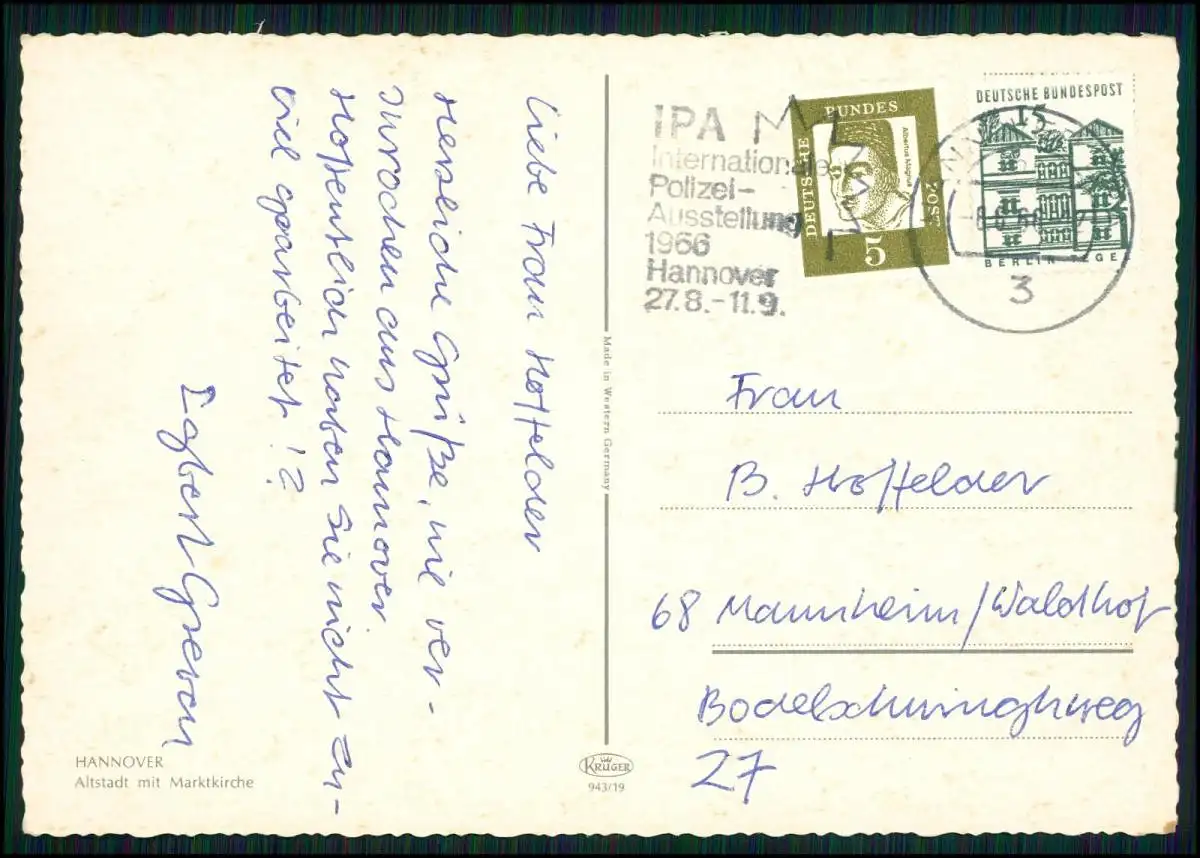 Liebe Frau Hoffelder
Herzliche Grüße, wie ver-
sprochen aus Hannover.
Hoffentlich haben Sie nicht zu-
viel gearbeitet!?
Egbert Greven
HANNOVER
Altstadt mit Marktkirche
Made in Western Germany
KRÜGER
943/19
IPA
Internationale
Polizei-
Ausstellung
1966
Hannover
27.8.-11.9.
DEUTSCHE BUNDESPOST
Albertus Magnus
5
DEUTSCHE BUNDESPOST
15
BERLIN TEGEL
3
Frau
B. Hoffelder
68 Mannheim/Waldhof
Bodelschwinghweg
27